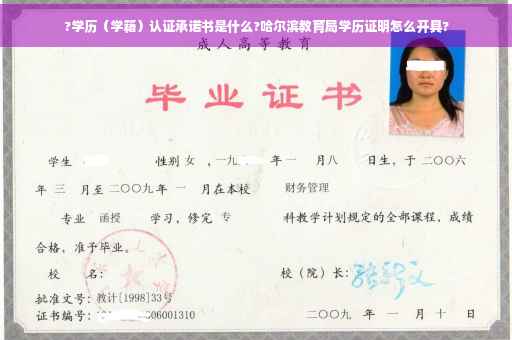 ?学历（学籍）认证承诺书是什么?哈尔滨教育局学历证明怎么开具?
成人高等教育
毕业证书
学生 性别 女 ，一九 年 一 月八 日生，于 二〇〇六
年 三 月至 二〇〇九 年 一 月在本校 财务管理
专业 函授 学习，修完 专 科教学计划规定的全部课程，成绩
合格，准予毕业。
校 名： 校（院）长：
批准文号：教计[1998]33号
证书编号： 06001310 二〇〇九 年 一 月 十 日